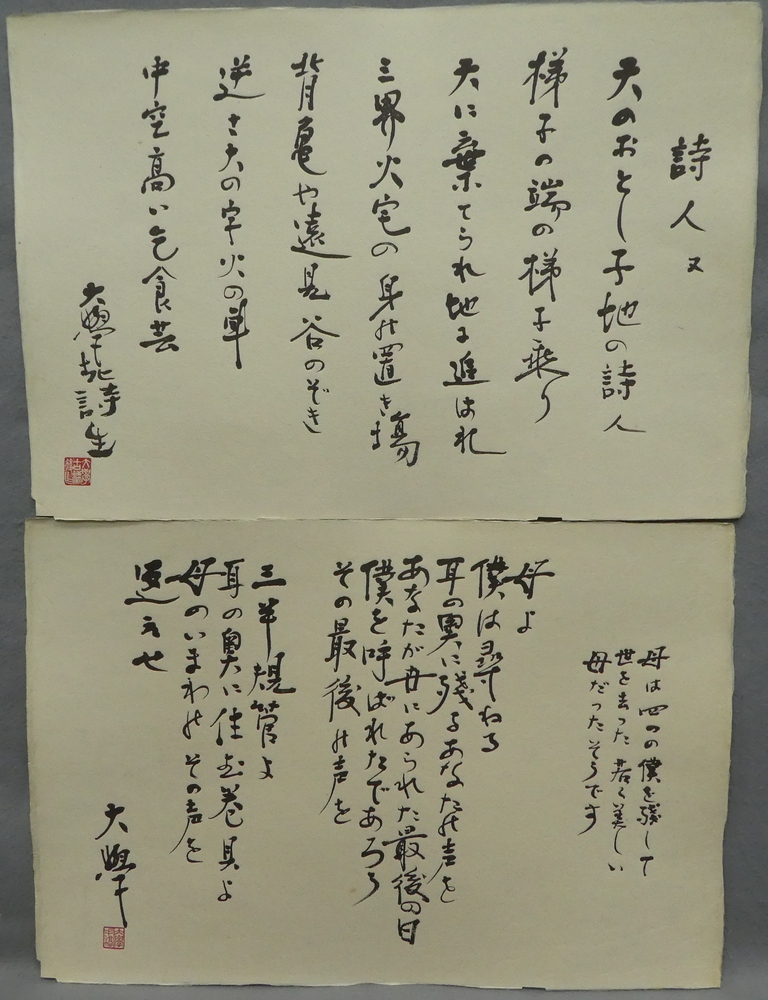 詩人又
天のおとし子地の詩人
梯子の端の梯子乗り
天に棄てられ地に追はれ
三界火宅の身の置き場
背亀や遠見谷のぞき
逆さ大の字火の車
中空高い乞食芸
大學 詩生
母は四つの僕を残して
世を去った若く美しい
母だったそうです
母よ
僕は尋ねる
耳の奥に残るあなたの声を
あなたが世にあられた最後の日
僕を呼ばれたであろう
その最後の声を
三半規管よ
耳の奥に住む巻貝よ
母のいまわのその声を
返えせ
大學